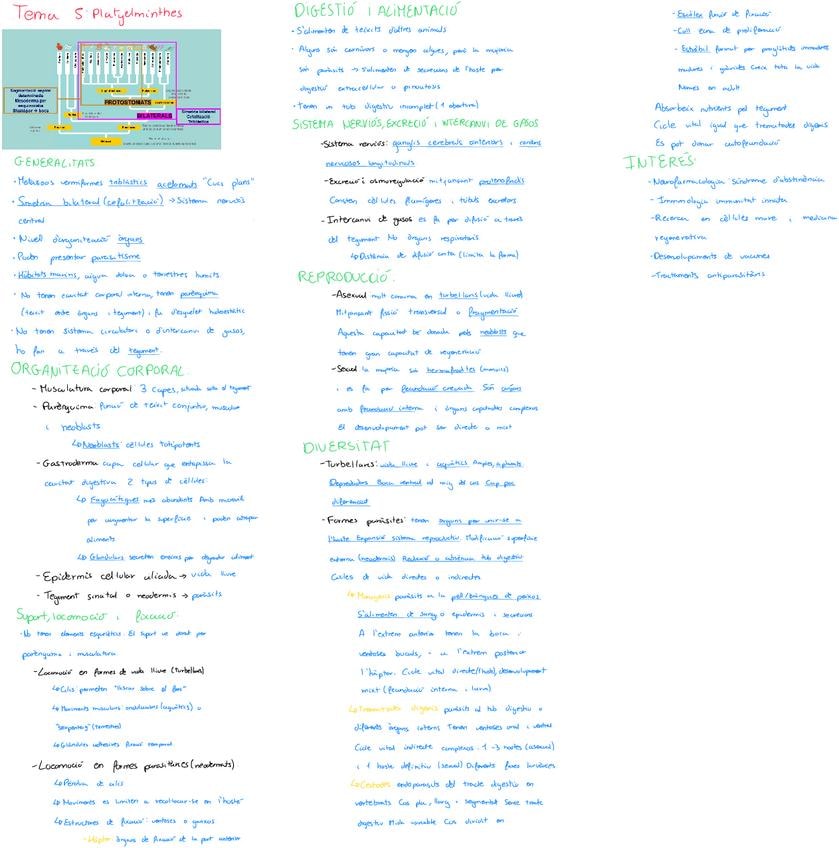 Tema 5: Platyelminthes
PROTOSTOMATS
BILATERALS
GENERALITATS
· Metazous vermiformes triblàstics acelomats "Cucs plans"
· Simetria bilateral (cefalització) → Sistema nerviós
central
· Nivell d'organització òrgans
· Poden presentar parasitisme
· Hàbitats marins, aigua dolça o terrestres humits
· No tenen cavitat corporal interna, tenen parènquima
(teixit entre òrgans i tegment) i fa d'esquelet hidrostàtic
· No tenen sistema circulatori o d'intercanvi de gasos,
ho fan a través del tegment.
ORGANITZACIÓ CORPORAL
- Musculatura corporal: 3 capes, situada sota el tegment
- Parènquima funció de teixit conjuntiu, muscular
i neoblasts
↳ Neoblasts: cèl·lules totipotents
- Gastroderma capa cel·lular que entapissa la
cavitat digestiva 2 tipus de cèl·lules
↳ Fagocítiques més abundants Amb
per augmentar la superfície i poden atrapar
aliments
↳ Glandulars secreten enzims per degradar aliment
- Epidermis cel·lular ciliada → vida lliure
- Tegment sincitial o neodermis → paràsits
Suport, locomoció i fixació
- No tenen elements esquelètics. El suport ve donat per
parènquima i musculatura
- Locomoció en formes de vida lliure (turbel·laris)
↳ Cilis permeten "lliscar sobre el fons"
↳ Moviments musculars ondulatoris (aquàtics) o
"serpenteig" (terrestres)
↳ Glàndules adhesives fixació temporal
- Locomoció en formes parasitàries (neodermats)
↳ Pèrdua de cilis
↳ Moviments es limiten a recol·locar-se en l'hoste
↳ Estructures de fixació: ventoses o ganxos
- Hàptor òrgans de fixació de la part anterior
DIGESTIÓ I ALIMENTACIÓ
· S'alimenten de teixits d'altres animals
· Alguns són carnívors o mengen algues, però la majoria
són paràsits → S'alimenten de secrecions de l'hoste per
digestió extracel·lular o pinocitosis
· Tenen un tub digestiu incomplet (1 obertura)
SISTEMA NERVIÓS, EXCRECIÓ I INTERCANVI DE GASOS
- Sistema nerviós: ganglis cerebrals anteriors i cordons
nerviosos longitudinals
- Excreció i osmoregulació mitjançant protonefridis
Consten cèl·lules flamígeres i túbuls excretors
- Intercanvi de gasos es fa per difusió a través
del tegment No òrgans respiratoris
↳ Distància de difusió curta (limita la forma)
REPRODUCCIÓ
- Asexual molt comuna en turbel·laris (vida lliure)
Mitjançant fissió transversal o fragmentació
Aquesta capacitat be donada pels neoblasts que
tenen gran capacitat de regeneració
- Sexual la majoria són hermafrodites (monoics)
i es fa per fecundació creuada Són
amb fecundació interna i òrgans copuladors complexos
El desenvolupament pot ser directe o mixt
DIVERSITAT
- Turbel·laris: vida lliure i aquàtics
Depredadors Boca ventral al mig del cos Cap poc
diferenciat
- Formes paràsites tenen òrgans per unir-se a
l'hoste Expansió sistema reproductiu. Modificació superfície
externa (neodermis) Reducció o absència tub digestiu
Cicles de vida directes o indirectes
↳ Monogenis paràsits a la pell/brànquies de peixos
S'alimenten de sang o epidermis i secrecions
A l'extrem anterior tenen la boca i
ventoses bucals, i a l'extrem posterior
l'hàptor. Cicle vital directe (1 hoste), desenvolupament
mixt (fecundació interna i larva)
↳ Trematodes digenis paràsits al tub digestiu o
diferents òrgans interns Tenen ventoses oral i ventral
Cicle vital indirecte complexos 1-3 hostes (asexual)
i 1 hoste definitiu (sexual) Diferents fases larvàries
↳ Cestodes endoparàsits del tracte digestiu en
vertebrats Cos pla, llarg i segmentat Sense tracte
digestiu Mida variable Cos dividit en
- Escòlex funció de fixació
- Coll zona de proliferació
- Estròbil format per proglòtids immadurs
madurs i gràvids Creix tota la vida
Només en adult
Absorbeix nutrients pel tegment
Cicle vital igual que trematodes digenis
Es pot donar autofecundació
INTERÈS
- Neurofarmacologia Síndrome d'abstinència
- Immunologia immunitat innata
- Recerca en cèl·lules mare i medicina
regenerativa
- Desenvolupament de vacunes
- Tractaments antiparasitaris